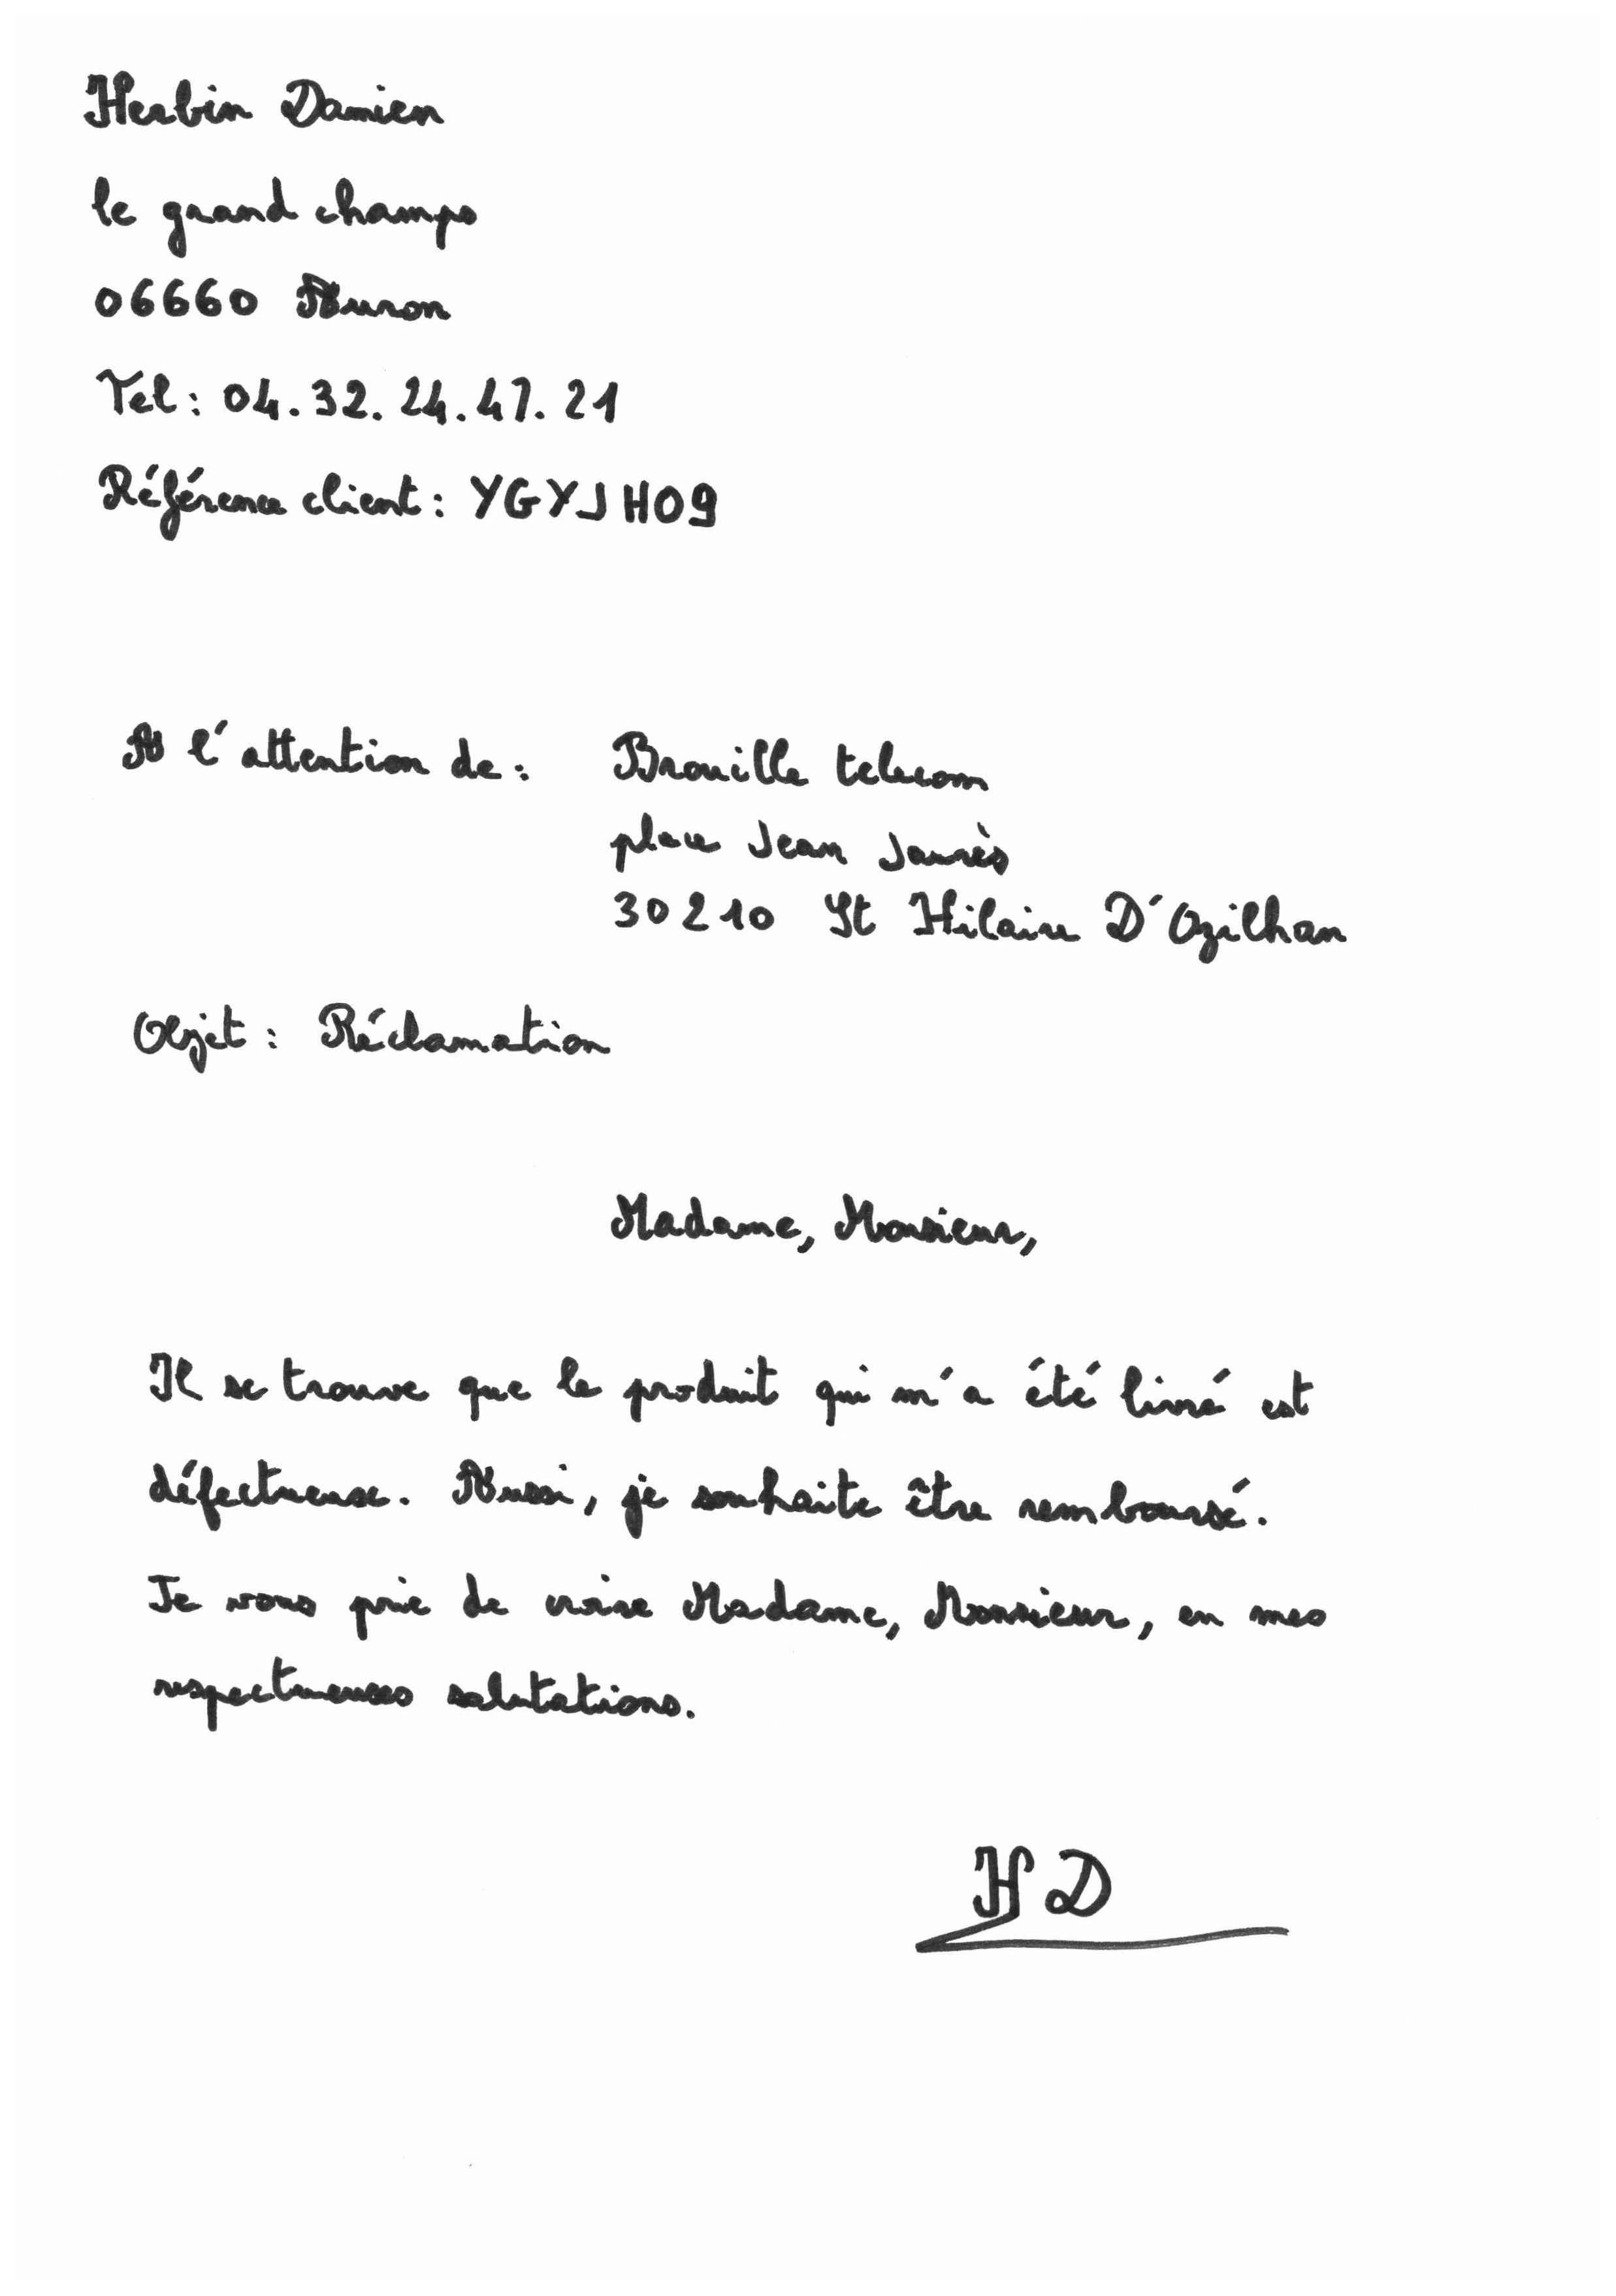 Herbin Damien
le grand champs
06660 Auron
Tel : 04.32.24.47.21
Référence client : YGYJH09
A l'attention de : Brouille telecom
place Jean Jaurès
30210 St Hilaire D'Ozilhan
Objet : Réclamation
Madame, Monsieur,
Il se trouve que le produit qui m'a été livré est
défectueuse. Aussi, je souhaite être remboursé.
Je vous prie de croire Madame, Monsieur, en mes
respectueuses salutations.
HD